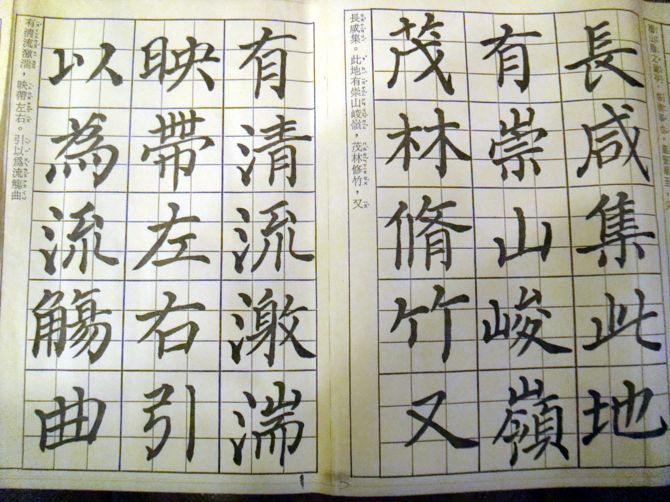 長咸集此地
有崇山峻嶺
茂林脩竹又
長咸集。此地有崇山峻嶺，茂林修竹，又
有清流激湍
映帶左右引
以為流觴曲
有清流激湍，映帶左右。引以爲流觴曲